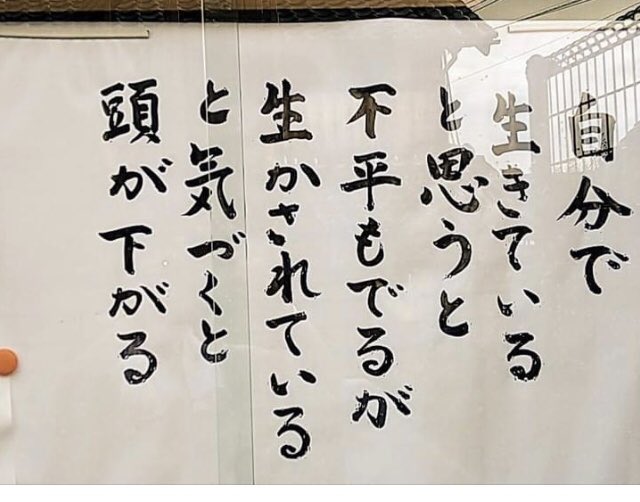 自分で
生きている
と思うと
不平もでるが
生かされている
と気づくと
頭が下がる